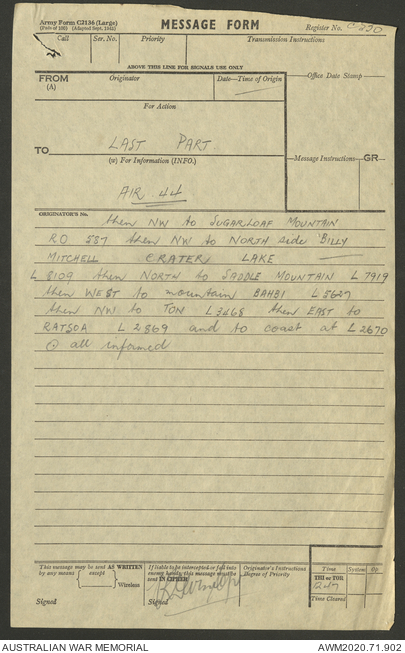 Army Form C2136 (Large)
(Pads of 100) (Adapted Sept. 1942)
MESSAGE FORM
Register No. C 230
Call
Ser. No.
Priority
Transmission Instructions
ABOVE THIS LINE FOR SIGNALS USE ONLY
FROM
(A)
Originator
Date—Time of Origin
Office Date Stamp
For Action
TO
LAST PART
(W) For Information (INFO.)
Message Instructions
GR
AIR 44
ORIGINATOR'S No.
then NW to SUGARLOAF MOUNTAIN
RO 587 then NW to NORTH side BILLY
MITCHELL CRATER LAKE
L 8109 then NORTH to SADDLE MOUNTAIN L 7919
then WEST to mountain BAHBI L 5627
then NW to TON L 3468 then EAST to
RATSOA L 2869 and to coast at L 2670
all informed
This message may be sent AS WRITTEN
by any means
except
Wireless
Signed
If liable to be intercepted or fall into
enemy hands, this message must be
sent IN CIPHER
Signed
Originator's Instructions
Degree of Priority
Time
System
Op
THI or TOR
Time Cleared
AUSTRALIAN WAR MEMORIAL
AWM2020.71.902